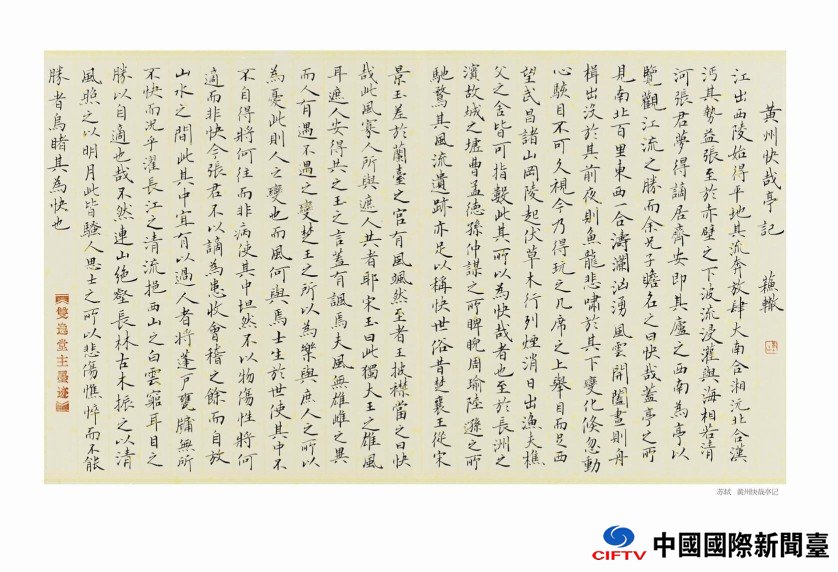 黃州快哉亭記 蘇轍
江出西陵始得平地其流奔放肆大南合湘沅北合漢
沔其勢益張至於赤壁之下波流浸灌與海相若清
河張君夢得謫居齊安即其廬之西南為亭以
覽觀江流之勝而余兄子瞻名之曰快哉蓋亭之所
見南北百里東西一合濤瀾洶湧風雲開闔晝則舟
楫出沒於其前夜則魚龍悲嘯於其下變化倏忽動
心駭目不可久視今乃得玩之几席之上舉目而足西
望武昌諸山岡陵起伏草木行列煙消日出漁夫樵
父之舍皆可指數此其所以為快哉者也至於長洲之
濱故城之墟曹孟德孫仲謀之所睥睨周瑜陸遜之所
馳騖其風流遺跡亦足以稱快世俗昔楚襄王從宋
景玉差於蘭臺之宮有風颯然至者王披襟當之曰快
哉此風寡人所與庶人共者耶宋玉曰此獨大王之雄風
耳庶人安得共之玉之言蓋有諷焉夫風無雄雌之異
而人有遇不遇之變楚王之所以為樂與庶人之所以
為憂此則人之變也而風何與焉士生於世使其中不
不自得將何往而非病使其中坦然不以物傷性將何
適而非快今張君不以謫為患收會稽之餘而自放
山水之間此其中宜有以過人者將蓬戶甕牖無所
不快而況乎濯長江之清流挹西山之白雲窮耳目之
勝以自適也哉不然連山絕壑長林古木振之以清
風照之以明月此皆騷人思士之所以悲傷憔悴而不能
勝者烏睹其為快也
雙逸堂主墨迹
苏轼 黄州快哉亭记
CIFTV 中國國際新聞臺